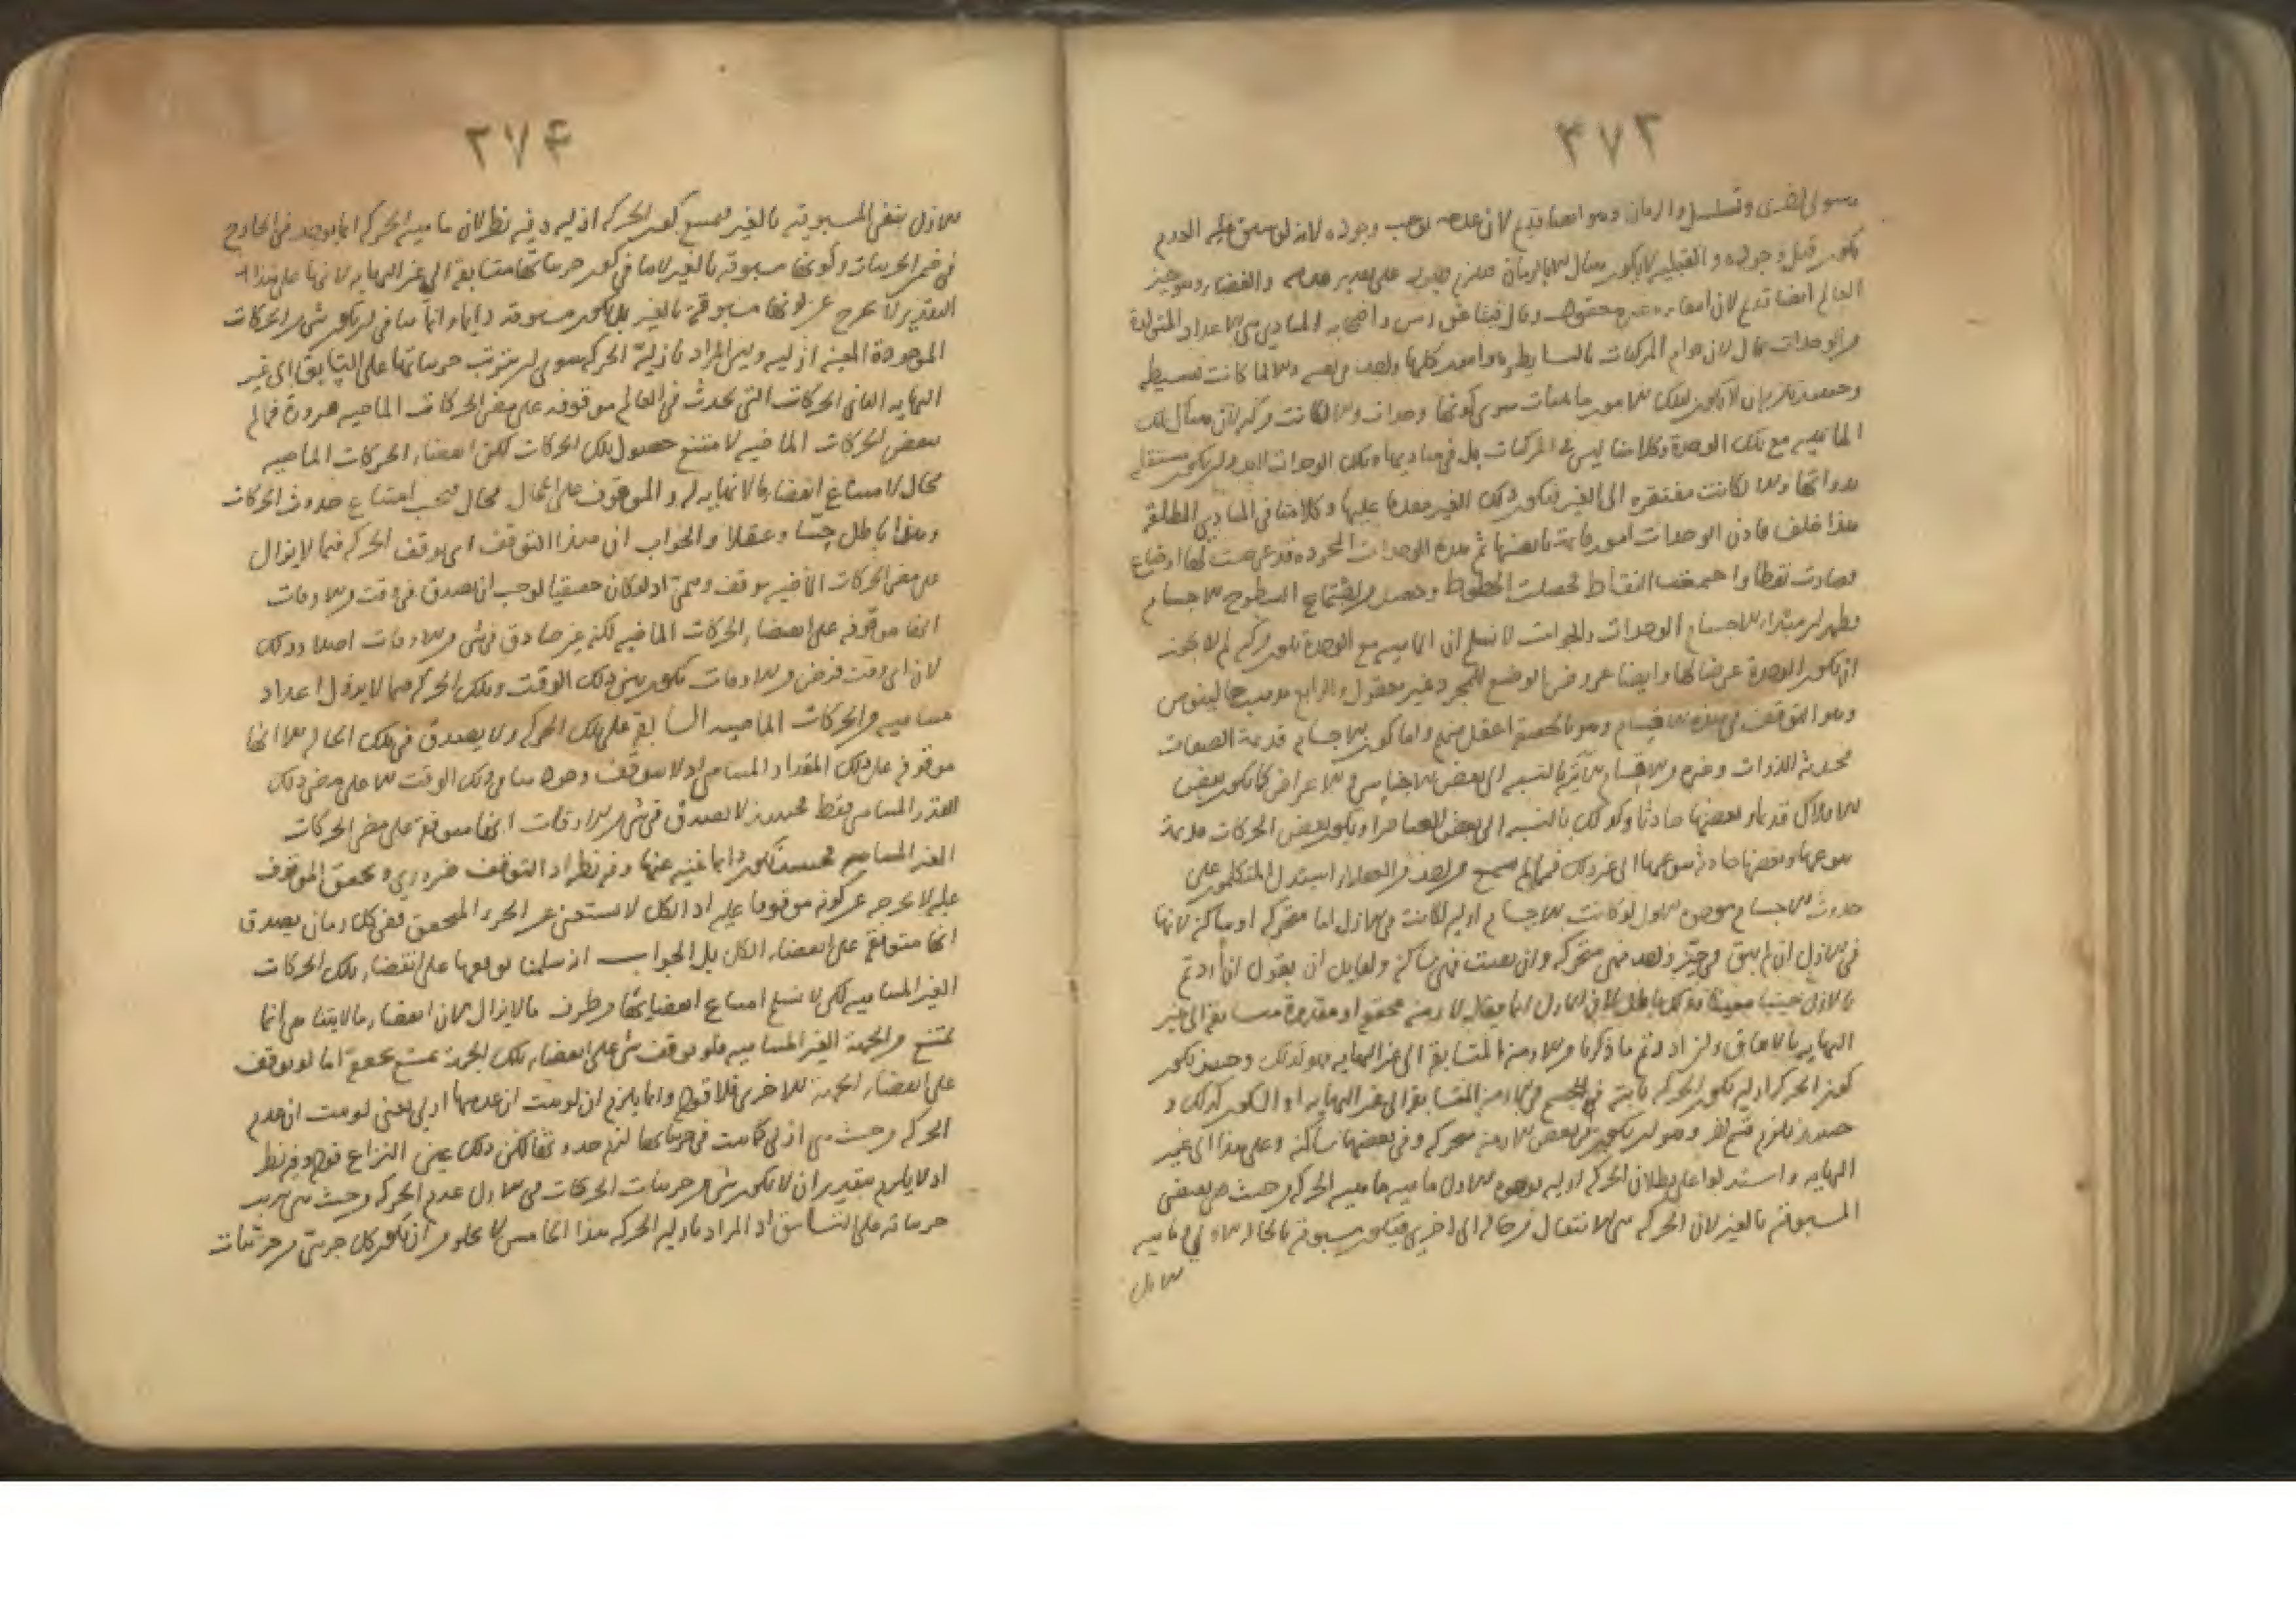 ٣٧٣
هيولى اخرى وتسلسل والزمان وهو ايضا قديم لان عدمه يوجب وجوده لانه لو سبق عليه العدم
يكون قبل وجوده والقبلية لا يكون الا بالزمان فيلزم وجوده على تقدير عدمه والفضاء وهو حيز
العالم ايضا قديم لان غير معقول وقال فيثاغورس واصحابه المبادي هي الاعداد المتولدة
من الوحدات قال لان قوام المركبات بالبسايط وهي امور كلها واحد في نفسه والا لما كانت بسيطة
وحينئذ اما ان لا يكون لتلك الامور ماهيات سوى كونها وحدات والا لكانت مركبة لان هناك تلك
الماهية مع تلك الوحدة وكلامنا ليس في المركبات بل في مباديها وتلك الوحدات لابد وان يكون مستقلة
بذواتها والا لكانت مفتقرة الى الغير فيكون ذلك الغير مقدما عليها وكلامنا في المبادي المطلقة
هذا خلف فاذن الوحدات امور قايمة بانفسها ثم هذه الوحدات المجردة قد عرضت لها اوضاع
فصارت نقطا واجتمعت النقاط فحصلت الخطوط وحصل من اجتماع السطوح الاجسام
وظهر ان مبتداء الاجسام الوحدات والجواب لا نسلم ان الماهية مع الوحدة يكون مركبة لم لا يجوز
ان يكون الوحدة عرضا لها وايضا عروض الوضع للمجرد غير معقول والرابع مذهب جالينوس
وهو التوقف في هذه الاقسام وهو بالحقيقة اعقل منهم واما كون الاجسام قديمة الصفات
محدثة الذوات وغيره من الاقسام الآتية بالنسبة الى بعض الاجناس والاعراض كما يكون بعض
الافلاك قديما وبعضها حادثا وكذلك بالنسبة الى بعض العناصر او يكون بعض الحركات قديمة
بنوعها وبعضها حادثة بنوعها الى غير ذلك فمما لم يصح من احد من العقلاء استدل المتكلمون على
حدوث الاجسام بوجوه الاول لو كانت الاجسام ازلية لكانت في الازل اما متحركة او ساكنة لانها
في الازل ان لم يبق في حيز واحد فهي متحركة وان بقيت فهي ساكنة ولقايل ان يقول ان اردتم
بالازل حينا معينا فذلك باطل لان الازل انما يقال لازمنة محققة او مقدرة متسابقة الى غير
النهاية بالاتفاق وان اردتم ما ذكرنا من الازمنة المتسابقة الى غير النهاية فهو كذلك وحينئذ يكون
كون الحركة ازلية بكون الحركة ثابتة في الجسم في الازمنة المتسابقة الى غير النهاية او السكون كذلك و
حينئذ يلزم قسم آخر وهو ان يكون في بعض الازمنة متحركة وفي بعضها ساكنة وعلى هذا الى غير
النهاية واستدلوا على بطلان الحركة ازلية بوجوه الاول ماهية ماهية الحركة من حيث هي يقتضي
المسبوقية بالغير لان الحركة هي الانتقال من حالة الى اخرى فيكون مسبوقة بالحالة الاولى وماهية
الازل
٢٧۴
الازل ينفي المسبوقية بالغير فيمتنع كون الحركة ازلية وفيه نظر لان ماهية الحركة انما يوجد في الخارج
في ضمن الجزئيات وكونها مسبوقة بالغير لا ينافي كون جزئياتها متسابقة الى غير النهاية لانها على هذا
التقدير لا يخرج عن كونها مسبوقة بالغير بل يكون مسبوقة دايما وانما ينافي ان يكون شئ من الحركات
الموجودة المعينة ازلية وليس المراد بازلية الحركة سوى ان يترتب جزئياتها على التسابق الى غير
النهاية الثاني الحركات التي تحدث في العالم موقوفة على مضي الحركات الماضية ضرورة فما لم
ينقض الحركات الماضية لامتنع حصول تلك الحركات لكن انقضاء الحركات الماضية
محال لامتناع انقضاء ما لا نهاية له والموقوف على المحال محال فيجب امتناع حدوث الحركات
وهذا باطل حسا وعقلا والجواب ان هذا التوقف اي توقف الحركة فيما لا يزال
على مضي الحركات الماضية توقف وهمي اذ لو كان حقيقيا لوجب ان يصدق في وقت من الاوقات
انها موقوفة على انقضاء الحركات الماضية لكنه غير صادق في شئ من الاوقات اصلا وذلك
لان اي وقت فرض من الاوقات يكون بين ذلك الوقت وتلك الحركة فيما لا يزال اعداد
متناهية من الحركات الماضية السابقة على تلك الحركة ولا يصدق في تلك الحالة الا انها
موقوفة على ذلك المقدار المتناهي اذ لا يتوقف وجوده في ذلك الوقت الا على مضي ذلك
القدر المتناهي فقط فحينئذ لا يصدق في شئ من الاوقات انها متوقفة على مضي الحركات
الغير المتناهية فحينئذ يكون دايما غنية عنها وفيه نظر اذ التوقف ضروري وتحقق الموقوف
عليه لا يخرجه عن كونه موقوفا عليه اذ الكل لا يستغني عن الجزء المحقق ففي كل زمان يصدق
انها متوقفة على انقضاء الكل بل الجواب ان سلمنا توقفها على انقضاء تلك الحركات
الغير المتناهية لكن لا نسلم امتناع انقضائها من طرف ما لا يزال لان انقضاء ما لا يتناهى انما
يمتنع من الجهة الغير المتناهية فلو توقف شئ على انقضاء تلك الجهة يمتنع تحققه اما لو توقف
على انقضاء الجهة الاخرى فلا قوله وانما يلزم ان لو ثبت ان عدمها ازلي يعني لو ثبت ان عدم
الحركة من حيث هي ازلي كانت في جزئياتها لزم حدوثها لكن ذلك عين النزاع قوله وفيه نظر
اذ لا يلزم بتقدير ان لا يكون شئ من جزئيات الحركات في الازل عدم الحركة من حيث هي ترتب
جزئياته على التسابق اذ المراد بازلية الحركة هذا الخامس لا يخلو من ان يكون كل جزئي من جزئيات